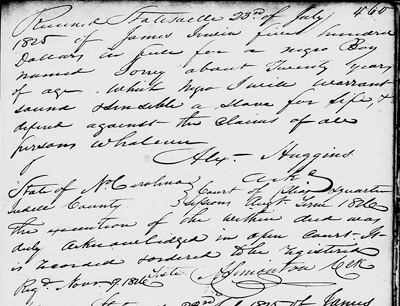 Received Statesville 23rd of July 460
1825 of James Irwin five hundred
Dollars in full for a negro Boy
named Torrey about Twenty years
of age which negro I will warrant
sound & sensible a slave for life, &
defend against the claims of all
persons whatever
Alex Huggins
State of No Carolina }
Iredell County } Court of Pleas & quarter
Sessions Augt. Term 1826
the execution of the within deed was
duly acknowledged in open court It
is recorded & ordered to be registered
Regd. Novr. 9 1826 Teste Clk
of James